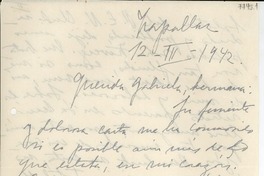 Zapallar
12-III-1942.
Querida Gabriela, hermana:
Tu
y dolorosa carta me ha conmovido
si es posible aún más de lo
que estaba, en mi corazón.